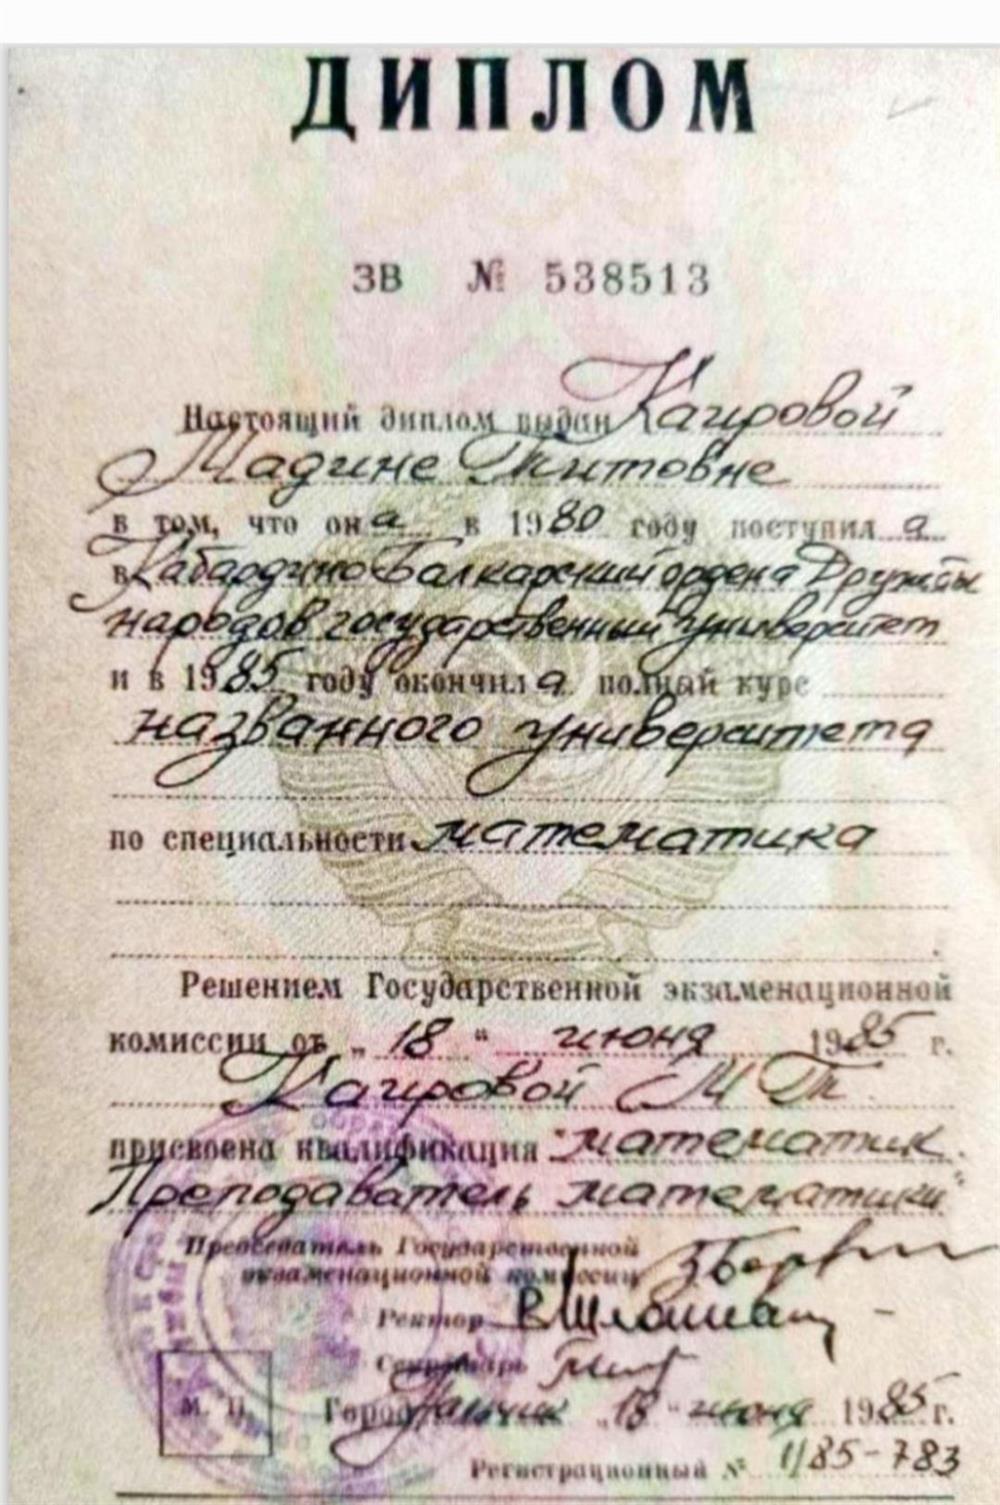 ДИПЛОМ
ЗВ № 538513
Настоящий диплом выдан Каировой
Мадине Титовне
в том, что она в 1980 году поступила
в Кабардино-Балкарский ордена Дружбы
народов государственный университет
и в 1985 году окончила полный курс
названного университета
по специальности математика
Решением Государственной экзаменационной
комиссии от „18“ июня 1985 г.
Каировой М Т.
присвоена квалификация "математик.
Преподаватель математики"
Председатель Государственной
экзаменационной комиссии
Ректор
Секретарь
М. П. Город Нальчик „18“ июня 1985 г.
Регистрационный № 1/85-783